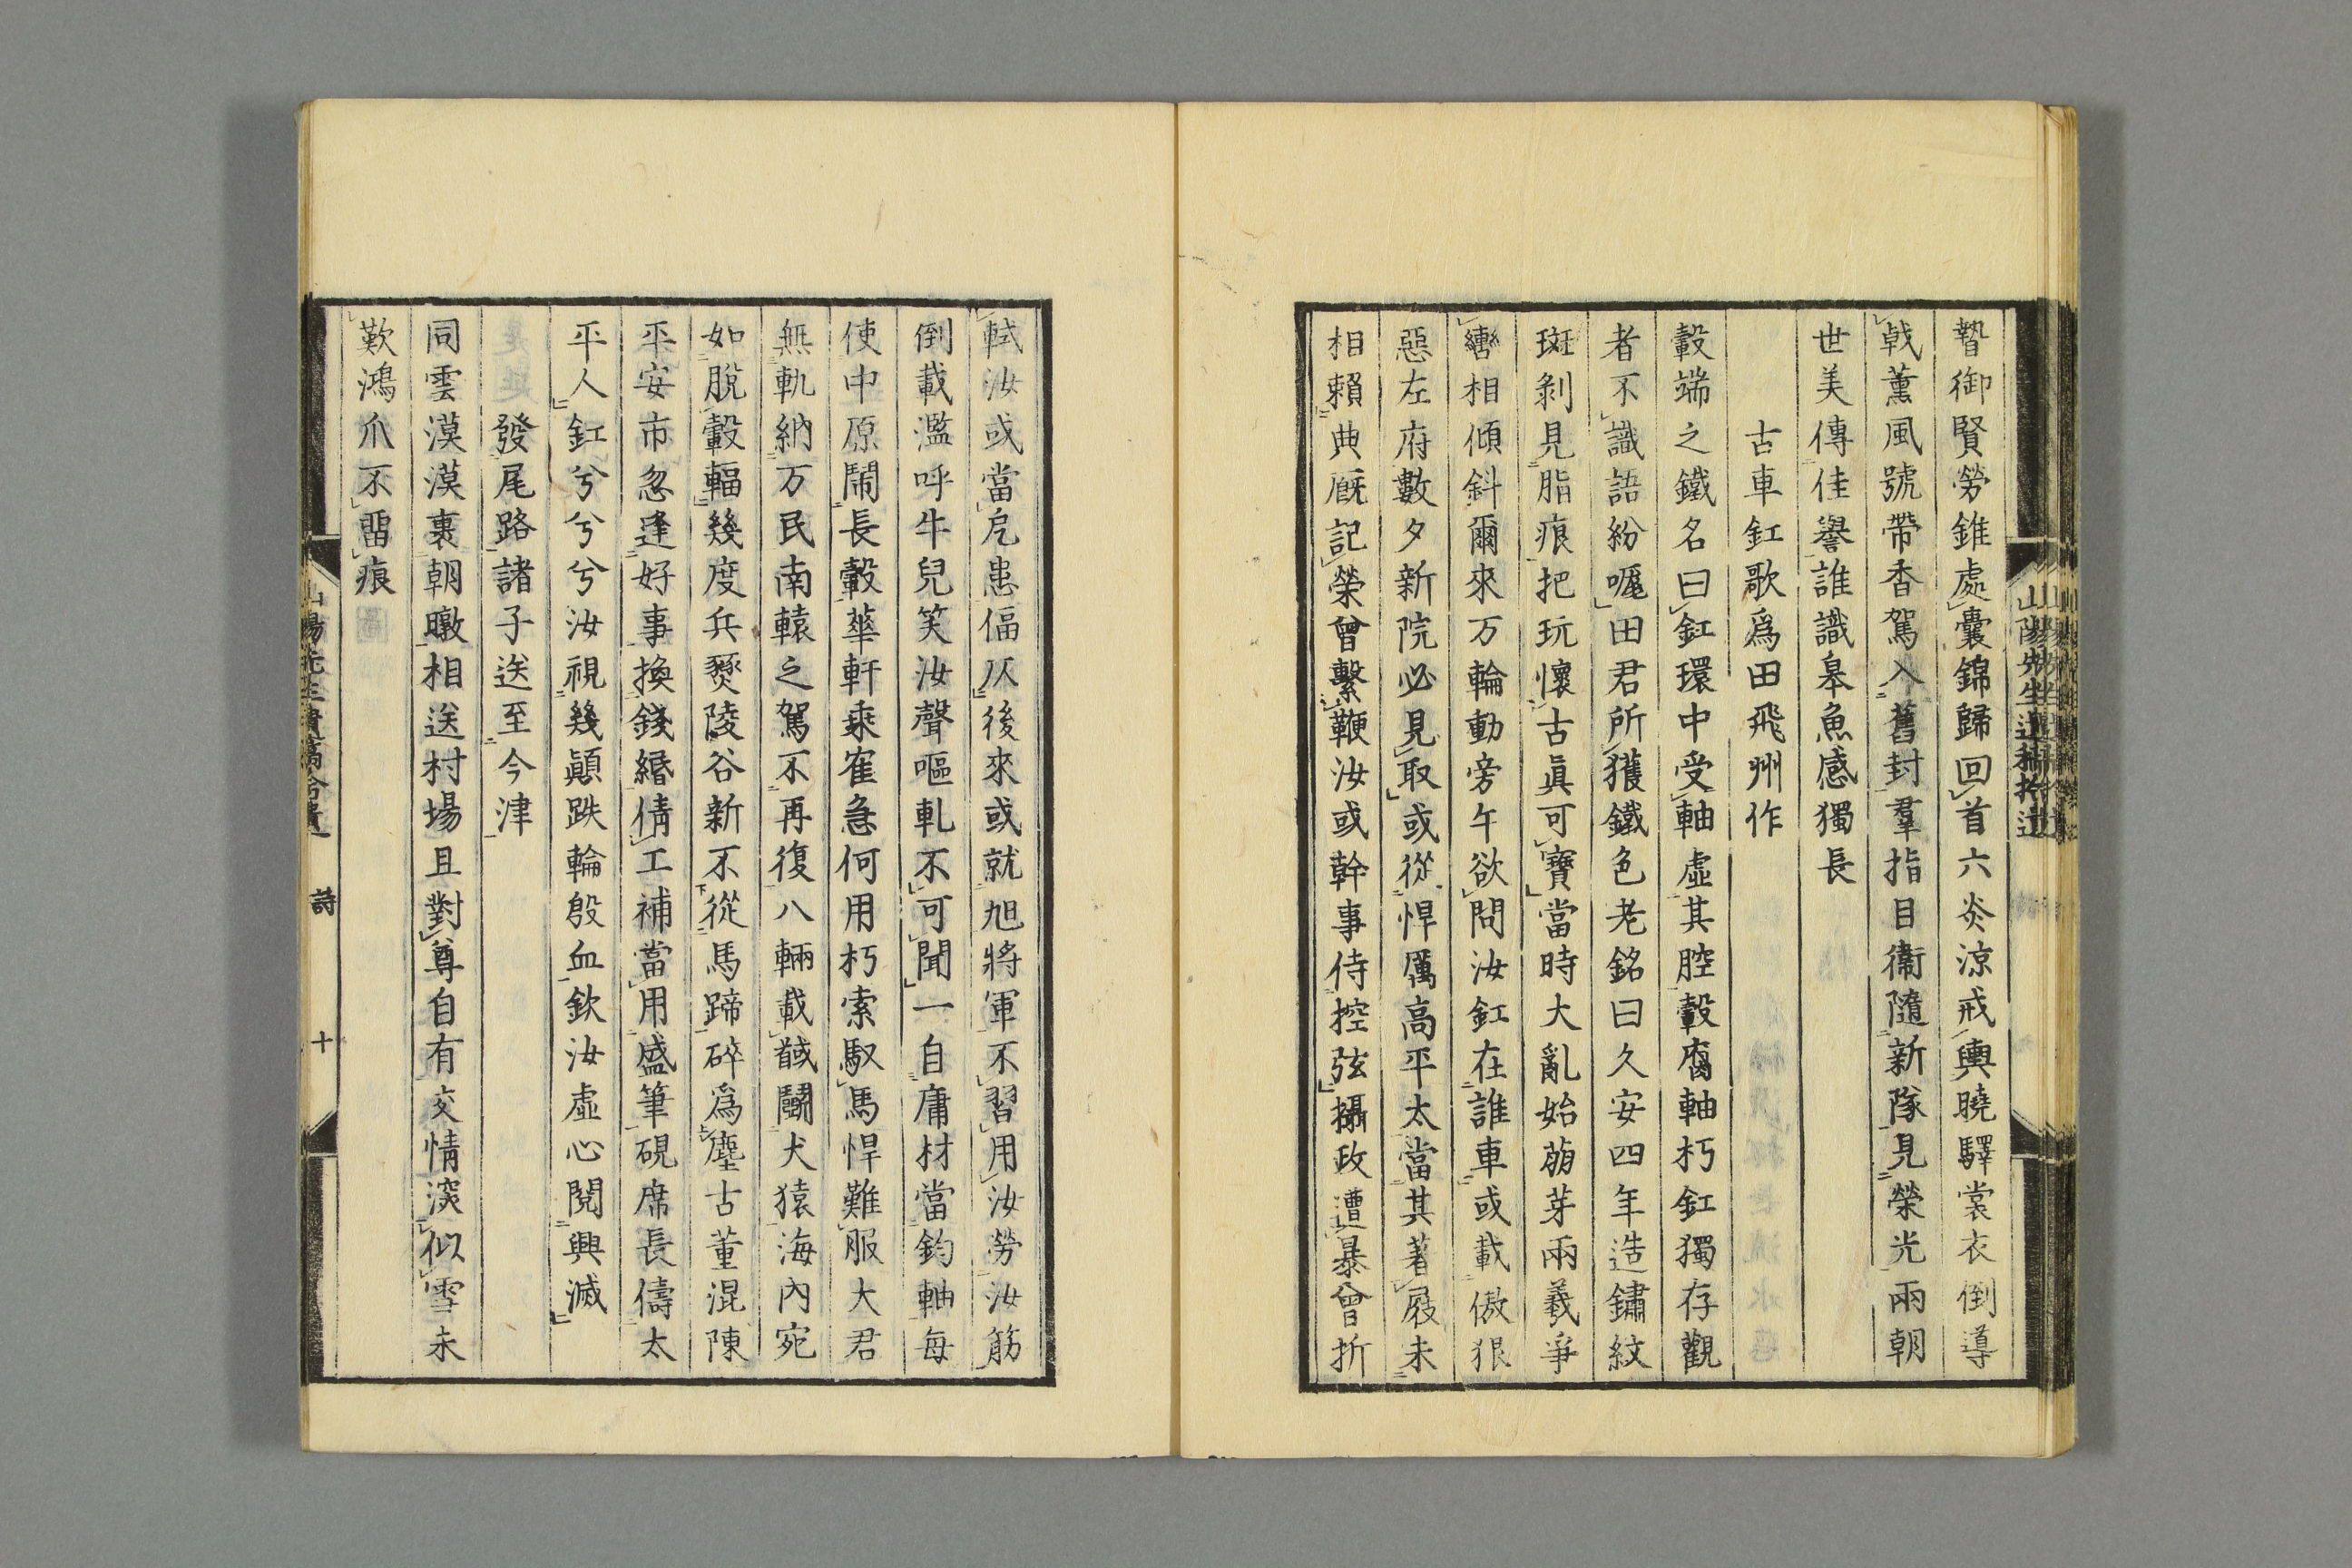 贄御賢勞錐處囊錦歸回首六炎涼戒輿曉驛裳衣倒導
戟薰風號帶香駕入舊封羣指目衞隨新隊見榮光兩朝
世美傳佳譽誰識皋魚感獨長
古車釭歌爲田飛州作
轂端之鐵名曰釭環中受軸虛其腔轂腐軸朽釭獨存觀
者不識語紛囉田君所獲鐵色老銘曰久安四年造鏽紋
斑剝見脂痕把玩懷古眞可寶當時大亂始萌芽兩羲爭
轡相傾斜爾來万輪動旁午欲問汝釭在誰車或載傲狠
惡左府數夕新院必見取或從悍厲高平太當其著屐未
相賴典厩記榮曾繫鞭汝或幹事侍控弦攝政遭暴曾折
軾汝或當戹患偪仄後來或就旭將軍不習用汝勞汝筋
倒載濫呼牛兒笑汝聲嘔軋不可聞一自庸材當鈞軸每
使中原鬧長轂華軒乘雀急何用朽索馭馬悍難服大君
無軌納万民南轅之駕不再復八輛載馘鬪犬猿海內宛
如脫轂輻幾度兵燹陵谷新不從馬蹄碎爲塵古董混陳
平安市忽逢好事換錢緡倩工補當用盛筆硯席長儔太
平人釭兮兮兮汝視幾顚跌輪殷血欽汝虛心閱興滅
發尾路諸子送至今津
同雲漠漠裹朝暾相送村場且對尊自有交情深似雪未
歎鴻爪不畱痕
山陽先生遺稿拾遺
詩
十